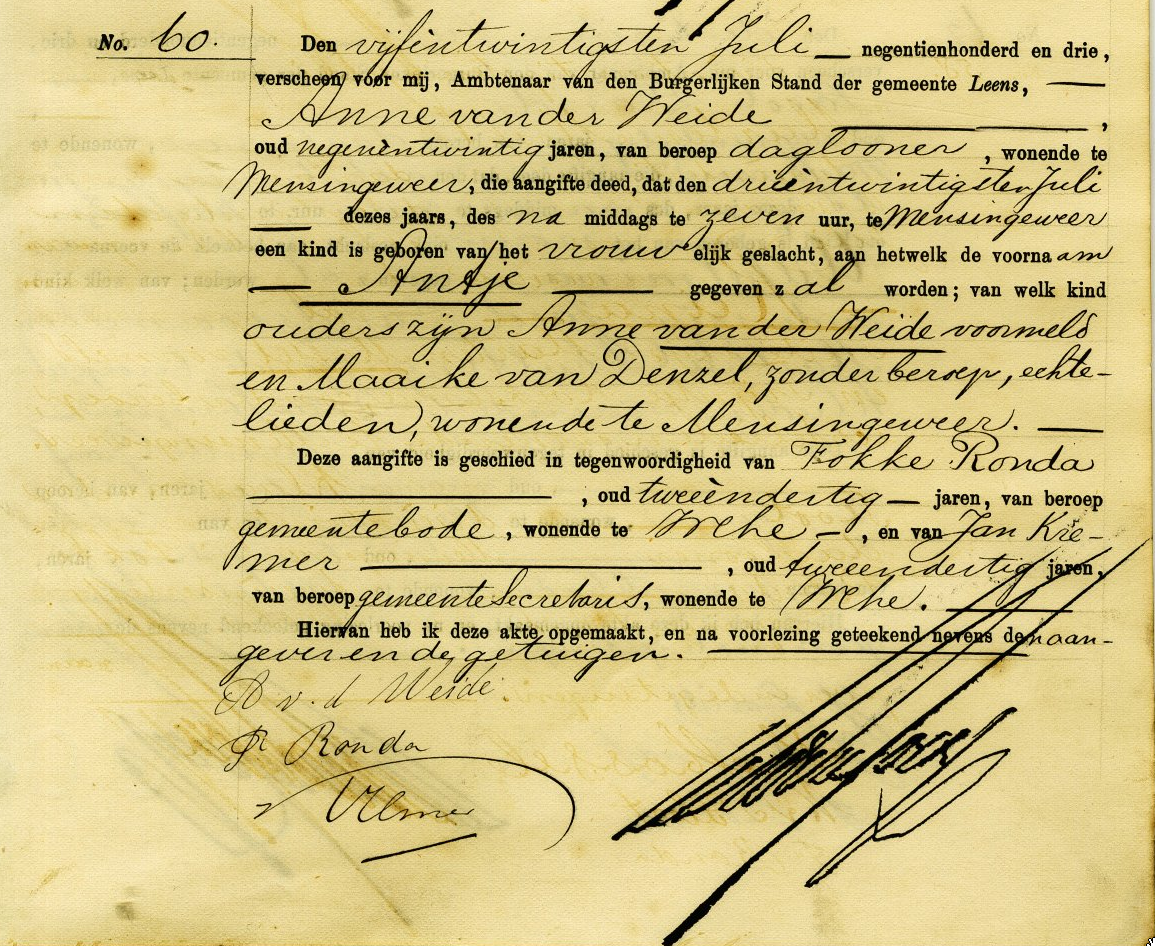 No. 60. Den vijfëntwintigsten Juli — negentienhonderd en drie,
verscheen voor mij, Ambtenaar van den Burgerlijken Stand der gemeente Leens, —
Anne van der Weide — ,
oud negenëntwintig jaren, van beroep daglooner , wonende te
Mensingeweer, die aangifte deed, dat den drieëntwintigsten Juli
— dezes jaars, des na middags te zeven uur, te Mensingeweer
een kind is geboren van het vrouwelijk geslacht, aan hetwelk de voornaam
— Antje — gegeven zal worden; van welk kind
ouders zijn Anne van der Weide voormeld
en Maaike van Denzel, zonder beroep, echte-
lieden, wonende te Mensingeweer. —
Deze aangifte is geschied in tegenwoordigheid van Fokke Ronda
— , oud tweeëndertig — jaren, van beroep
gemeentebode , wonende te Wehe — , en van Jan Kre-
mer — , oud tweeendertig jaren,
van beroep gemeentesecretaris, wonende te Wehe. —
Hiervan heb ik deze akte opgemaakt, en na voorlezing geteekend nevens den aan-
gever en de getuigen. —
A v. d Weide
F Ronda